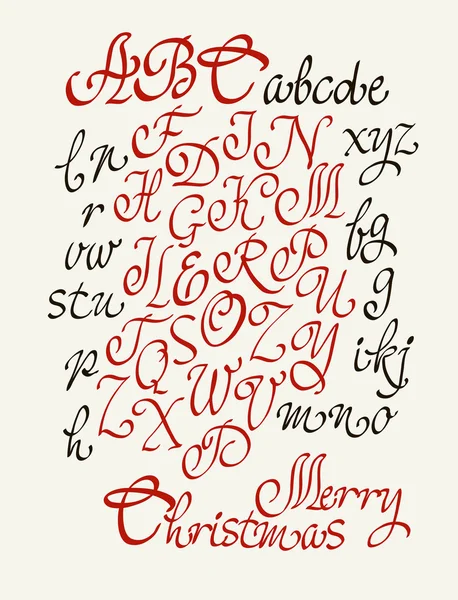 ABC abcde
b n F D I N xyz
r H G K M
vw I L E R P fg
stu T S O Z U g
p Q W Y ikj
h Z X V mno
P
Merry
Christmas